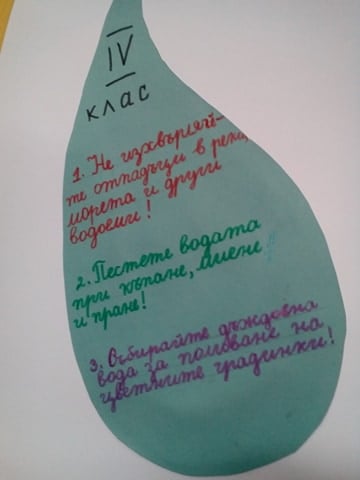 IV
клас
1. Не изхвърляй-
те отпадъци в реки,
морета и други
водоеми!
2. Пестете водата
при къпане, миене
и пране!
3. Събирайте дъждовна
вода за поливане на
цветните градинки!